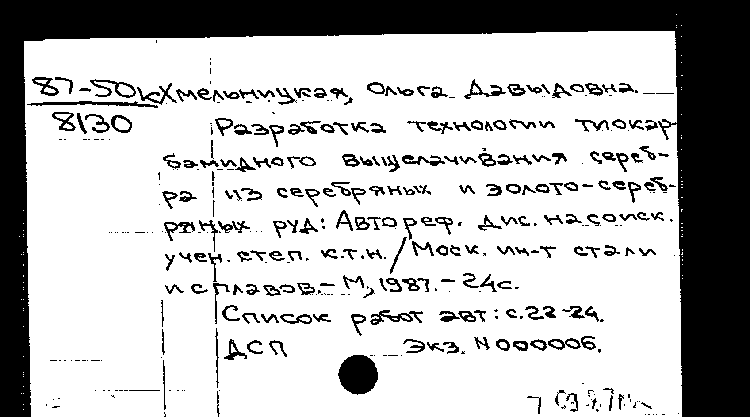 87-50к Хмельницкая, Ольга Давыдовна
8130
Разработка технологии тиокар-
бамидного выщелачивания сереб-
ра из серебряных и золото-сереб-
ряных руд: Автореф. дис. на соиск.
учен. степ. к.т.н. / Моск. ин-т стали
и сплавов.- М, 1987.- 24с.
Список работ авт: с.22-24.
ДСП Экз. N000006.